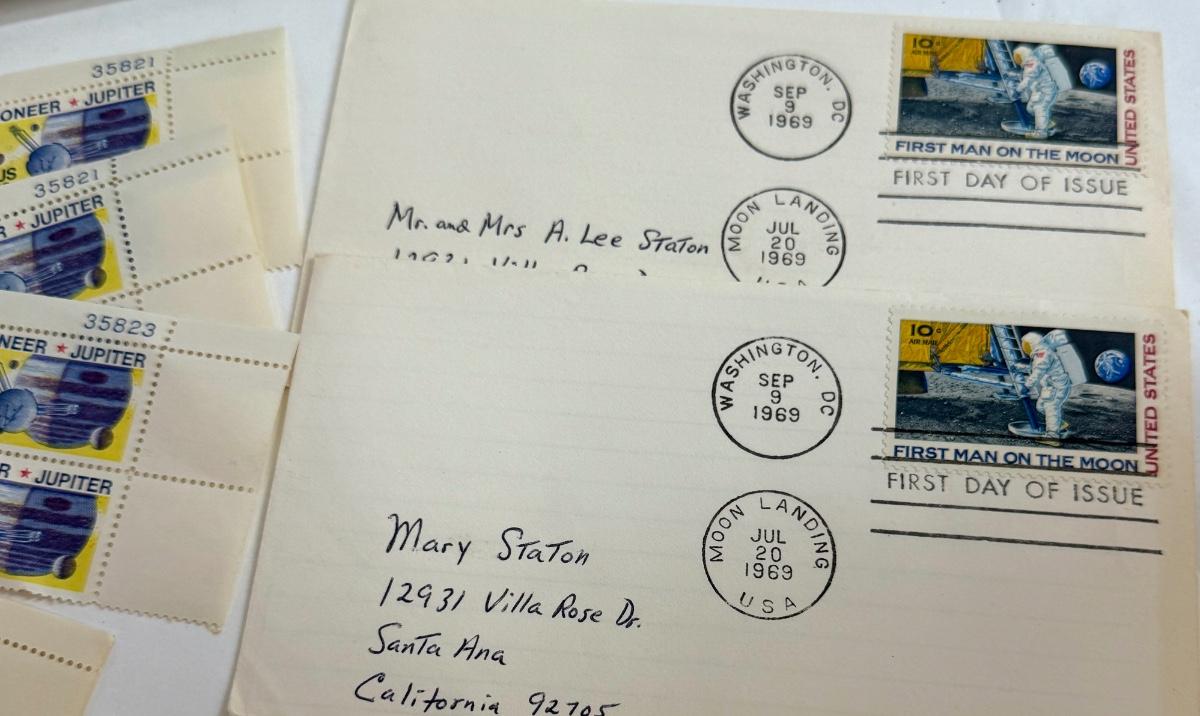 35821
ONEER ★ JUPITER
US
35821
R ★ JUPITER
35823
NEER ★ JUPITER
R ★ JUPITER
WASHINGTON, DC
SEP
9
1969
10¢
AIR MAIL
UNITED STATES
FIRST MAN ON THE MOON
FIRST DAY OF ISSUE
Mr. and Mrs A. Lee Staton
MOON LANDING
JUL
20
1969
USA
WASHINGTON, DC
SEP
9
1969
10¢
AIR MAIL
UNITED STATES
FIRST MAN ON THE MOON
FIRST DAY OF ISSUE
MOON LANDING
JUL
20
1969
USA
Mary Staton
12931 Villa Rose Dr.
Santa Ana
California 92705